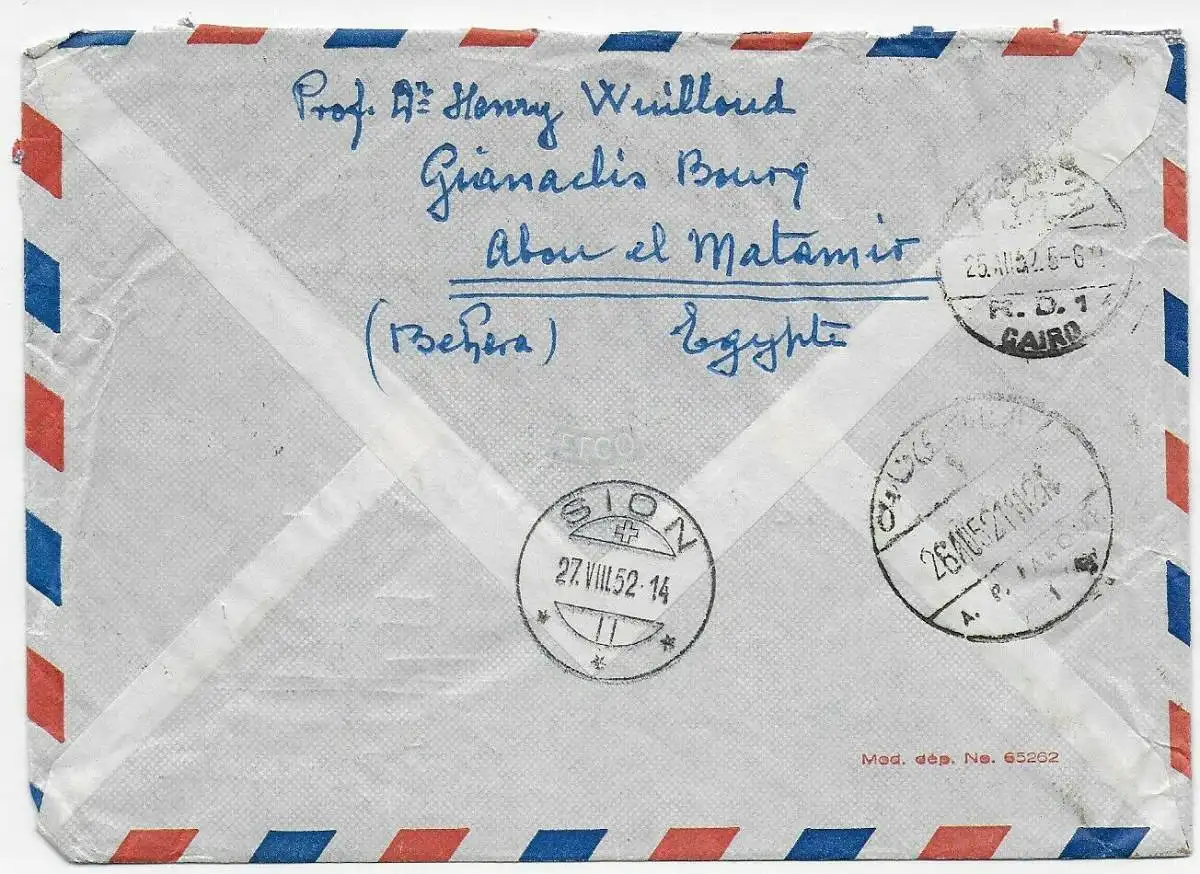 Prof. Dr Henry Wuilloud
Gianaclis Bourg
Abou el Matamir
(Behera) Egypte
25. VIII 52. 5-6
R. D. 1
CAIRO
ERCO
SION
27. VIII. 52 - 14
II
A. P.
1
Mod. dép. No. 65262